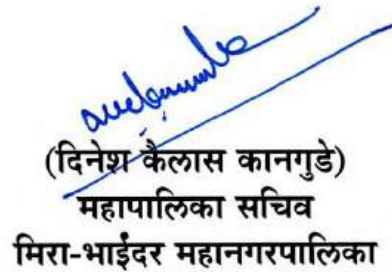 (दिनेश कैलास कानगुडे)
महापालिका सचिव
मिरा-भाईंदर महानगरपालिका